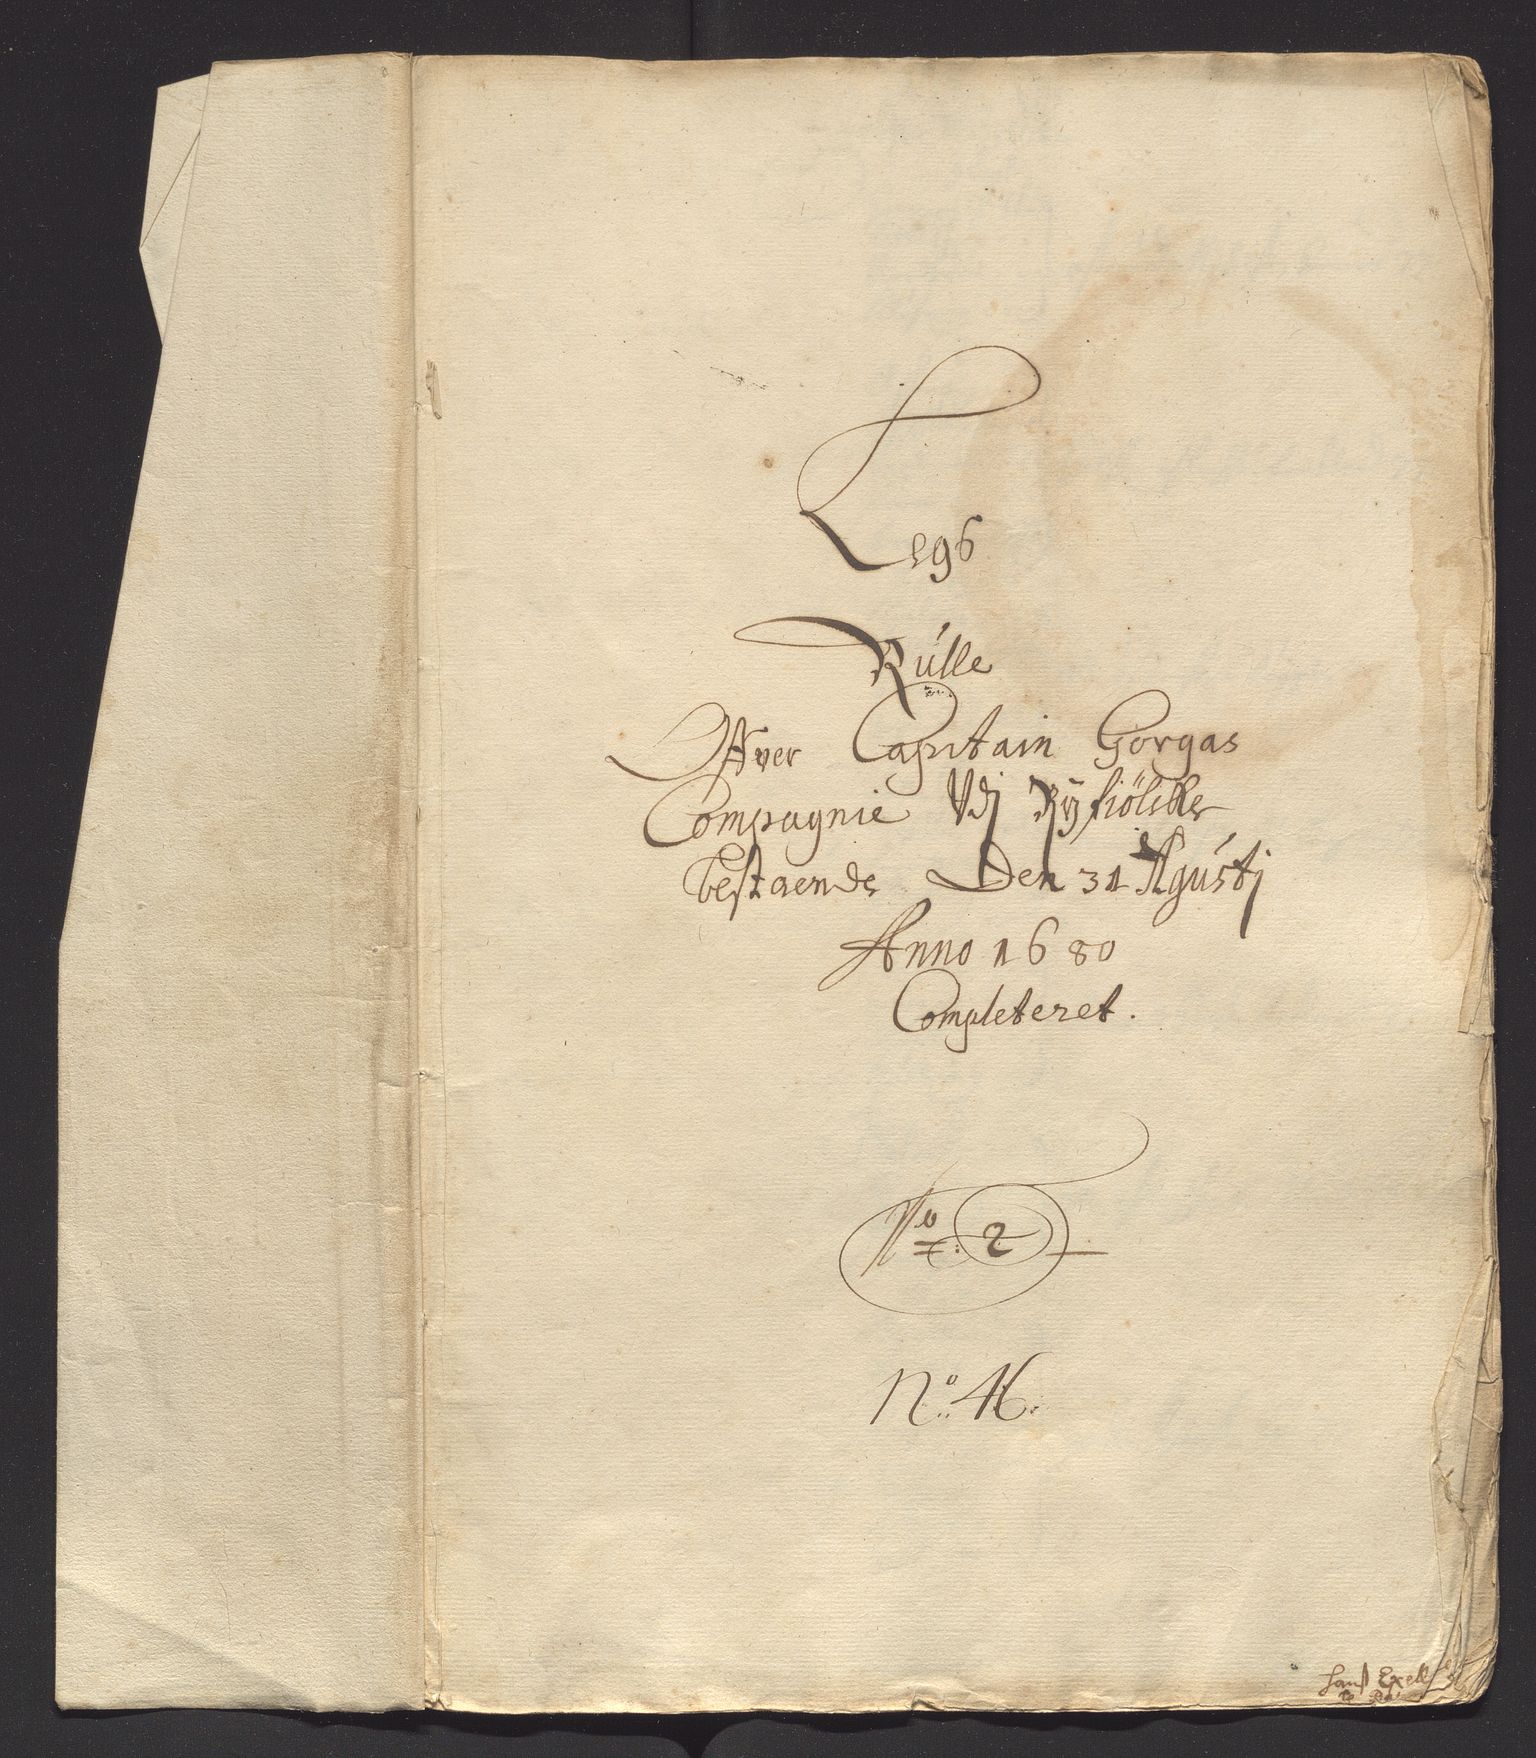 Legs
Rúlle
Offver Capitain Gorgas
Compagnie Vdj Ryfiölcke
bestaende Den 31 Agústj
Anno 1680
Completeret.
No: 2
No: 46:
Hanß Exell